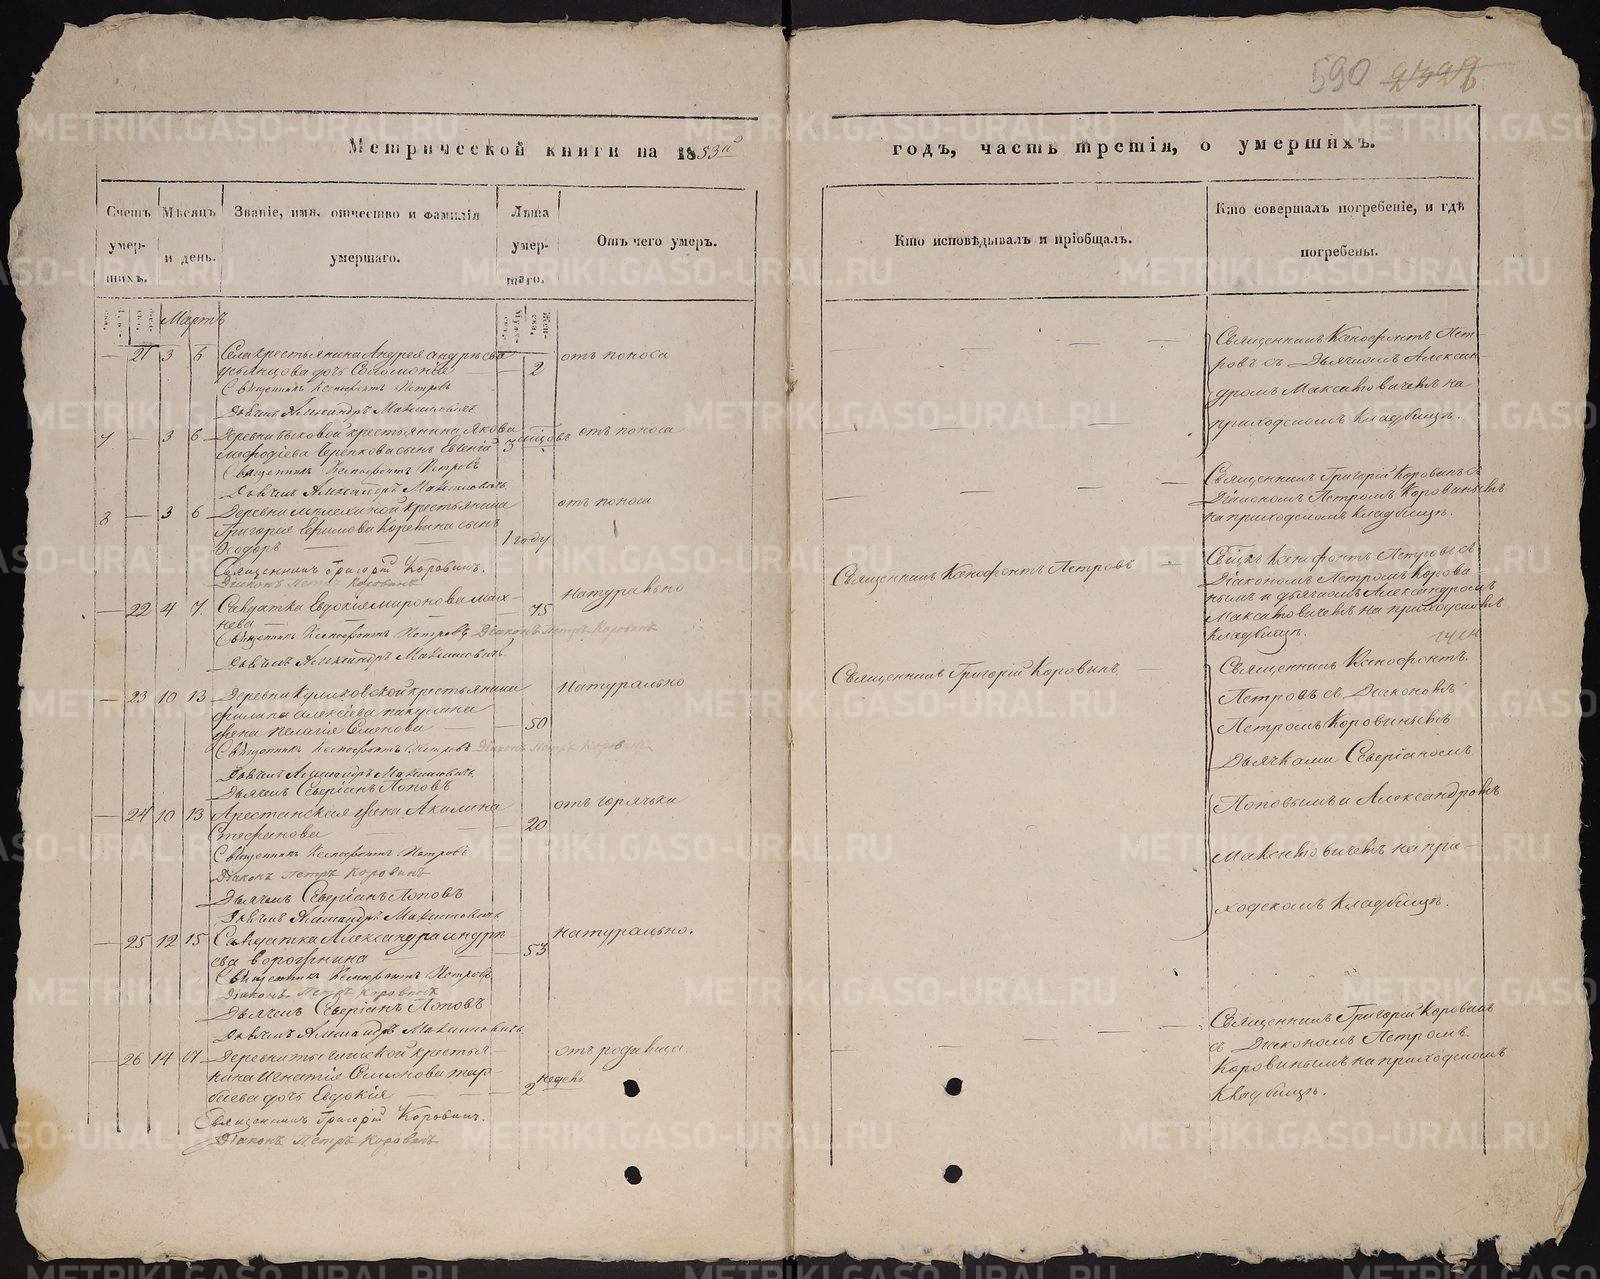 590 2322
Метрической книги на 1853й
годъ, часть третія, о умершихъ.
Счетъ умер-шихъ.
Мѣсяцъ и день.
Званіе, имя, отчество и фамилія умершаго.
Лѣта умер-шаго.
Отъ чего умеръ.
Кто исповѣдывалъ и пріобщалъ.
Кто совершалъ погребеніе, и гдѣ погребены.
Мартъ
— 21 3 6 Села крестьянина Андрея Андреева
дочь Соломонія — 2 отъ поноса
Священникъ Ксенофонтъ Петровъ
Дьячекъ Александръ Максимовичъ
Священникъ Ксенофонтъ Пет-
ровъ съ Дьячкомъ Алексан-
дромъ Максимовичемъ на
приходскомъ кладбищѣ.
7 — 3 6 Деревни Быковой крестьянина Якова
сынъ Евгеній 3 мѣсцовъ отъ поноса
Священникъ Ксенофонтъ Петровъ
Дьячекъ Александръ Максимовичъ
8 — 3 6 Деревни крестьянина
Григорія Ефимова Коревина сынъ
Ѳеодоръ — 1 году отъ поноса
Священникъ Григорій Коровинъ.
Діаконъ Петръ Коровинъ
Священникъ Григорій Коровинъ съ
Діакономъ Петромъ Коровинымъ
на приходскомъ кладбищѣ.
— 22 4 7 Солдатка Евдокія Миронова Мах-
нева — 75 натурально
Священникъ Ксенофонтъ Петровъ Діаконъ Петръ Коровинъ
Дьячекъ Александръ Максимовичъ
Священникъ Ксенофонтъ Петровъ
Ксенофонтъ Петровъ съ
Діакономъ Петромъ Корови-
нымъ и дьячкомъ Александромъ
Максимовичемъ на приходскомъ
кладбищѣ.
— 23 10 13 Деревни Куликовской крестьянина
Филипа Алексѣева
жена Пелагія Семенова — 50 натурально
Священникъ Ксенофонтъ Петровъ Діаконъ Петръ Коровинъ
Дьячекъ Александръ Максимовичъ
Дьячекъ Северіанъ Поповъ
Священникъ Григорій Коровинъ
Священникъ Ксенофонтъ
Петровъ съ Діакономъ
Петромъ Коровинымъ
Дьячками Северіаномъ
Поповымъ и Александромъ
Максимовичемъ на при-
ходскомъ кладбищѣ.
— 24 10 13 Арестанская жена Акилина
Стефанова — 20 отъ горячки
Священникъ Ксенофонтъ Петровъ
Діаконъ Петръ Коровинъ
Дьячекъ Северіанъ Поповъ
Дьячекъ Александръ Максимовичъ
— 25 12 15 Солдатка Александра Андре-
ева — 53 натурально.
Священникъ Ксенофонтъ Петровъ
Діаконъ Петръ Коровинъ
Дьячекъ Северіанъ Поповъ
Дьячекъ Александръ Максимовичъ
— 26 14 17 Деревни крестья-
нина Игнатія Семенова
дочь Евдокія — 2 недель отъ родимца.
Священникъ Григорій Коровинъ.
Діаконъ Петръ Коровинъ
Священникъ Григорій Коровинъ
съ Діакономъ Петромъ
Коровинымъ на приходскомъ
кладбищѣ.
METRIKI.GASO-URAL.RU